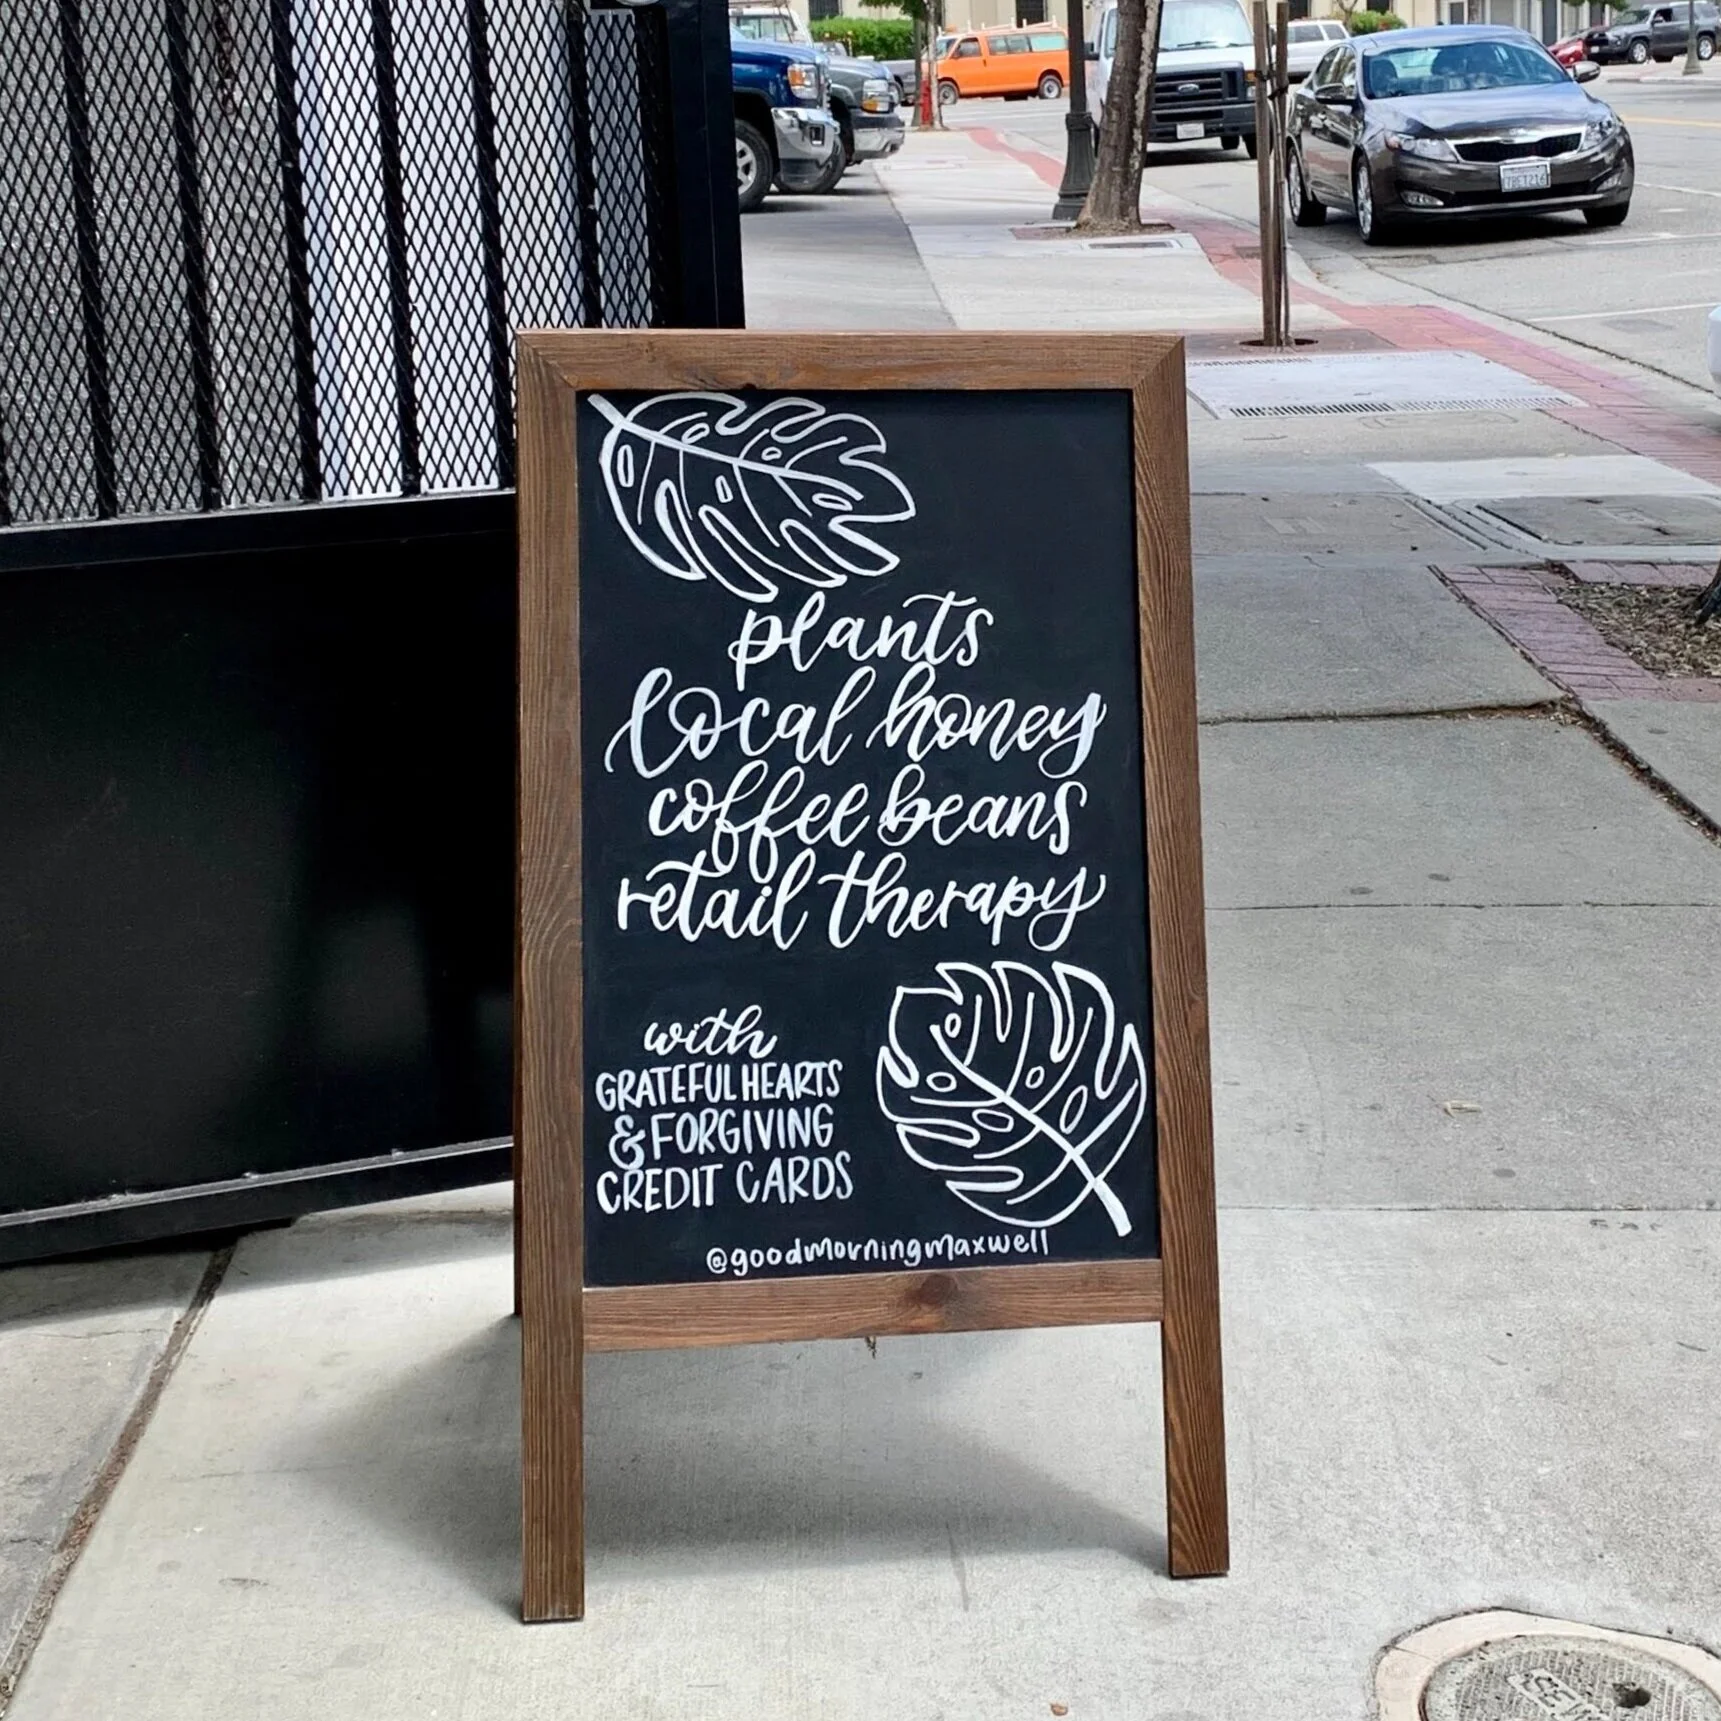 plants
local honey
coffee beans
retail therapy
with
GRATEFUL HEARTS
& FORGIVING
CREDIT CARDS
@goodmorningmaxwell